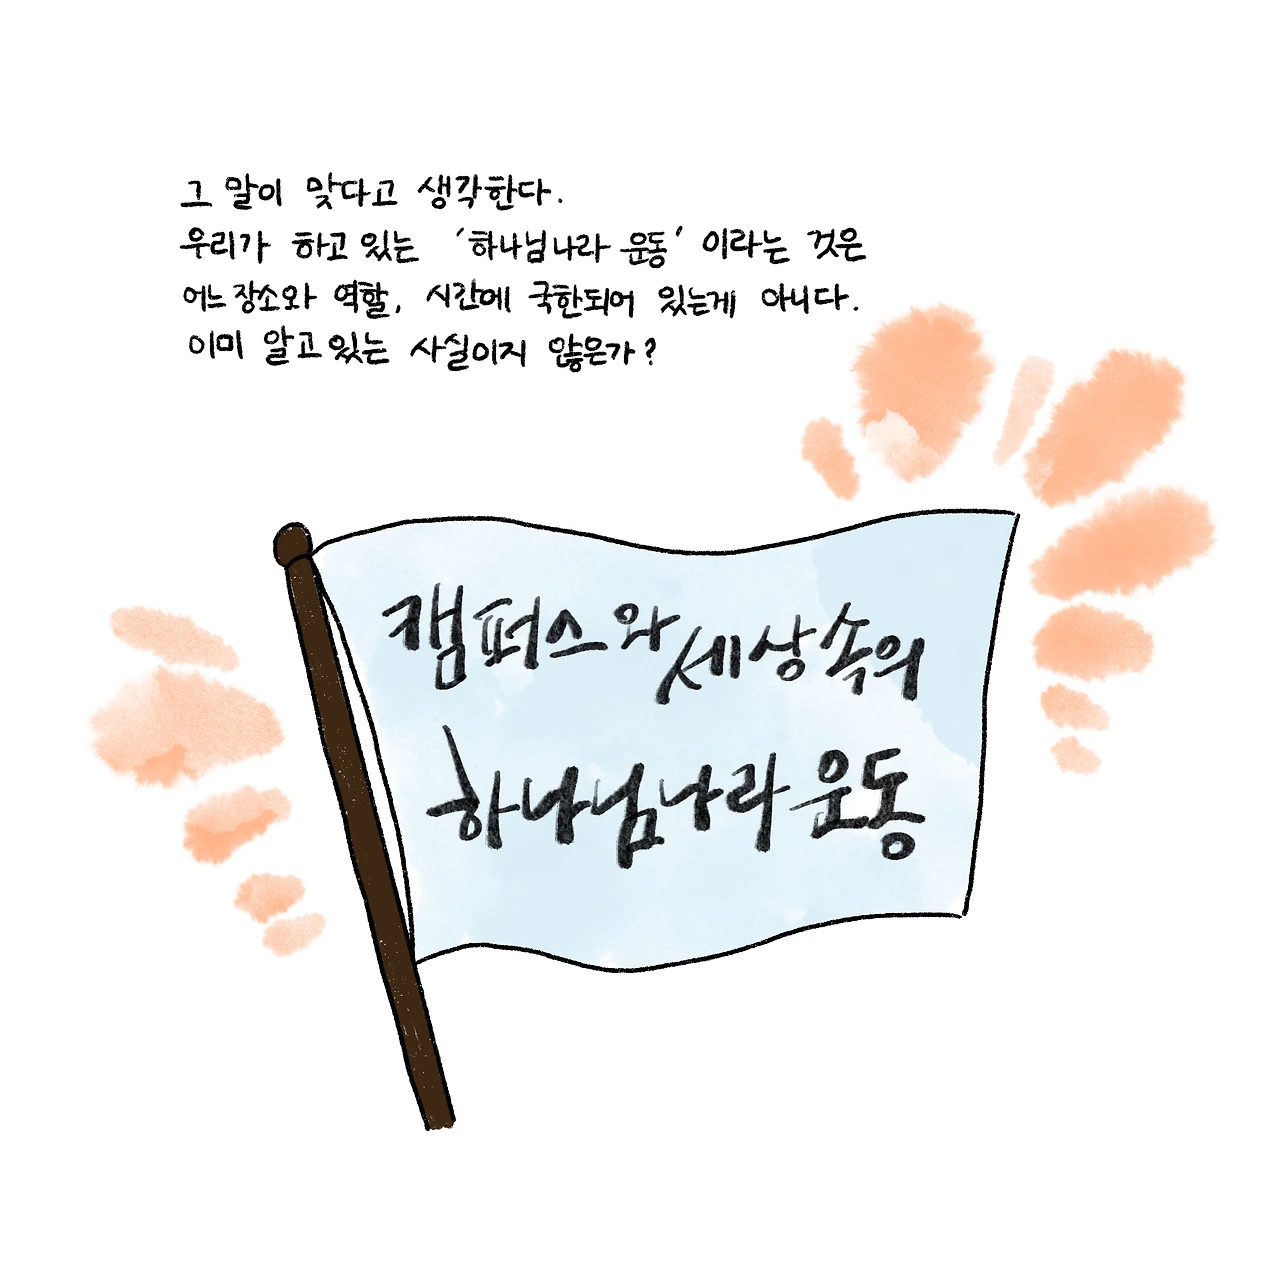 그 말이 맞다고 생각한다.
우리가 하고 있는 '하나님 나라 운동' 이라는 것은
어느 장소와 역할, 시간에 국한되어 있는게 아니다.
이미 알고 있는 사실이지 않은가?
캠퍼스와 세상 속의
하나님 나라 운동